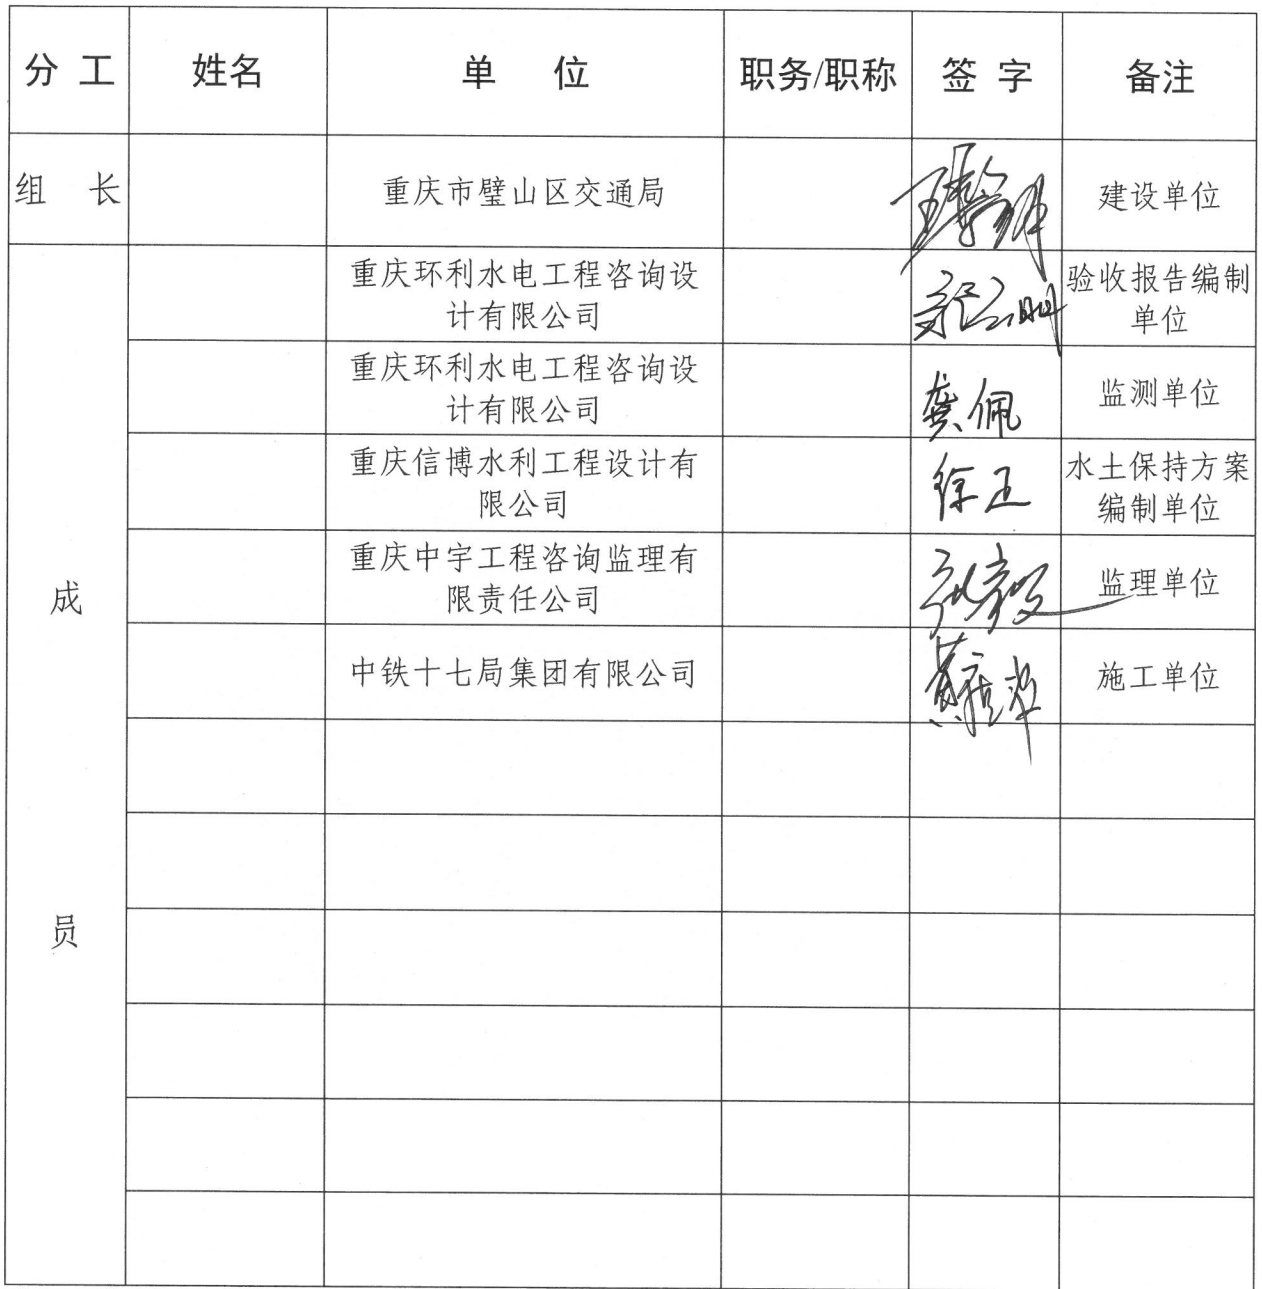 分 工 姓名 单 位 职务/职称 签 字 备注
组 长 重庆市璧山区交通局 建设单位
重庆环利水电工程咨询设 验收报告编制
计有限公司 单位
重庆环利水电工程咨询设
计有限公司 龚佩 监测单位
重庆信博水利工程设计有 水土保持方案
限公司 徐正 编制单位
重庆中宇工程咨询监理有
限责任公司 监理单位
中铁十七局集团有限公司 施工单位
成
员